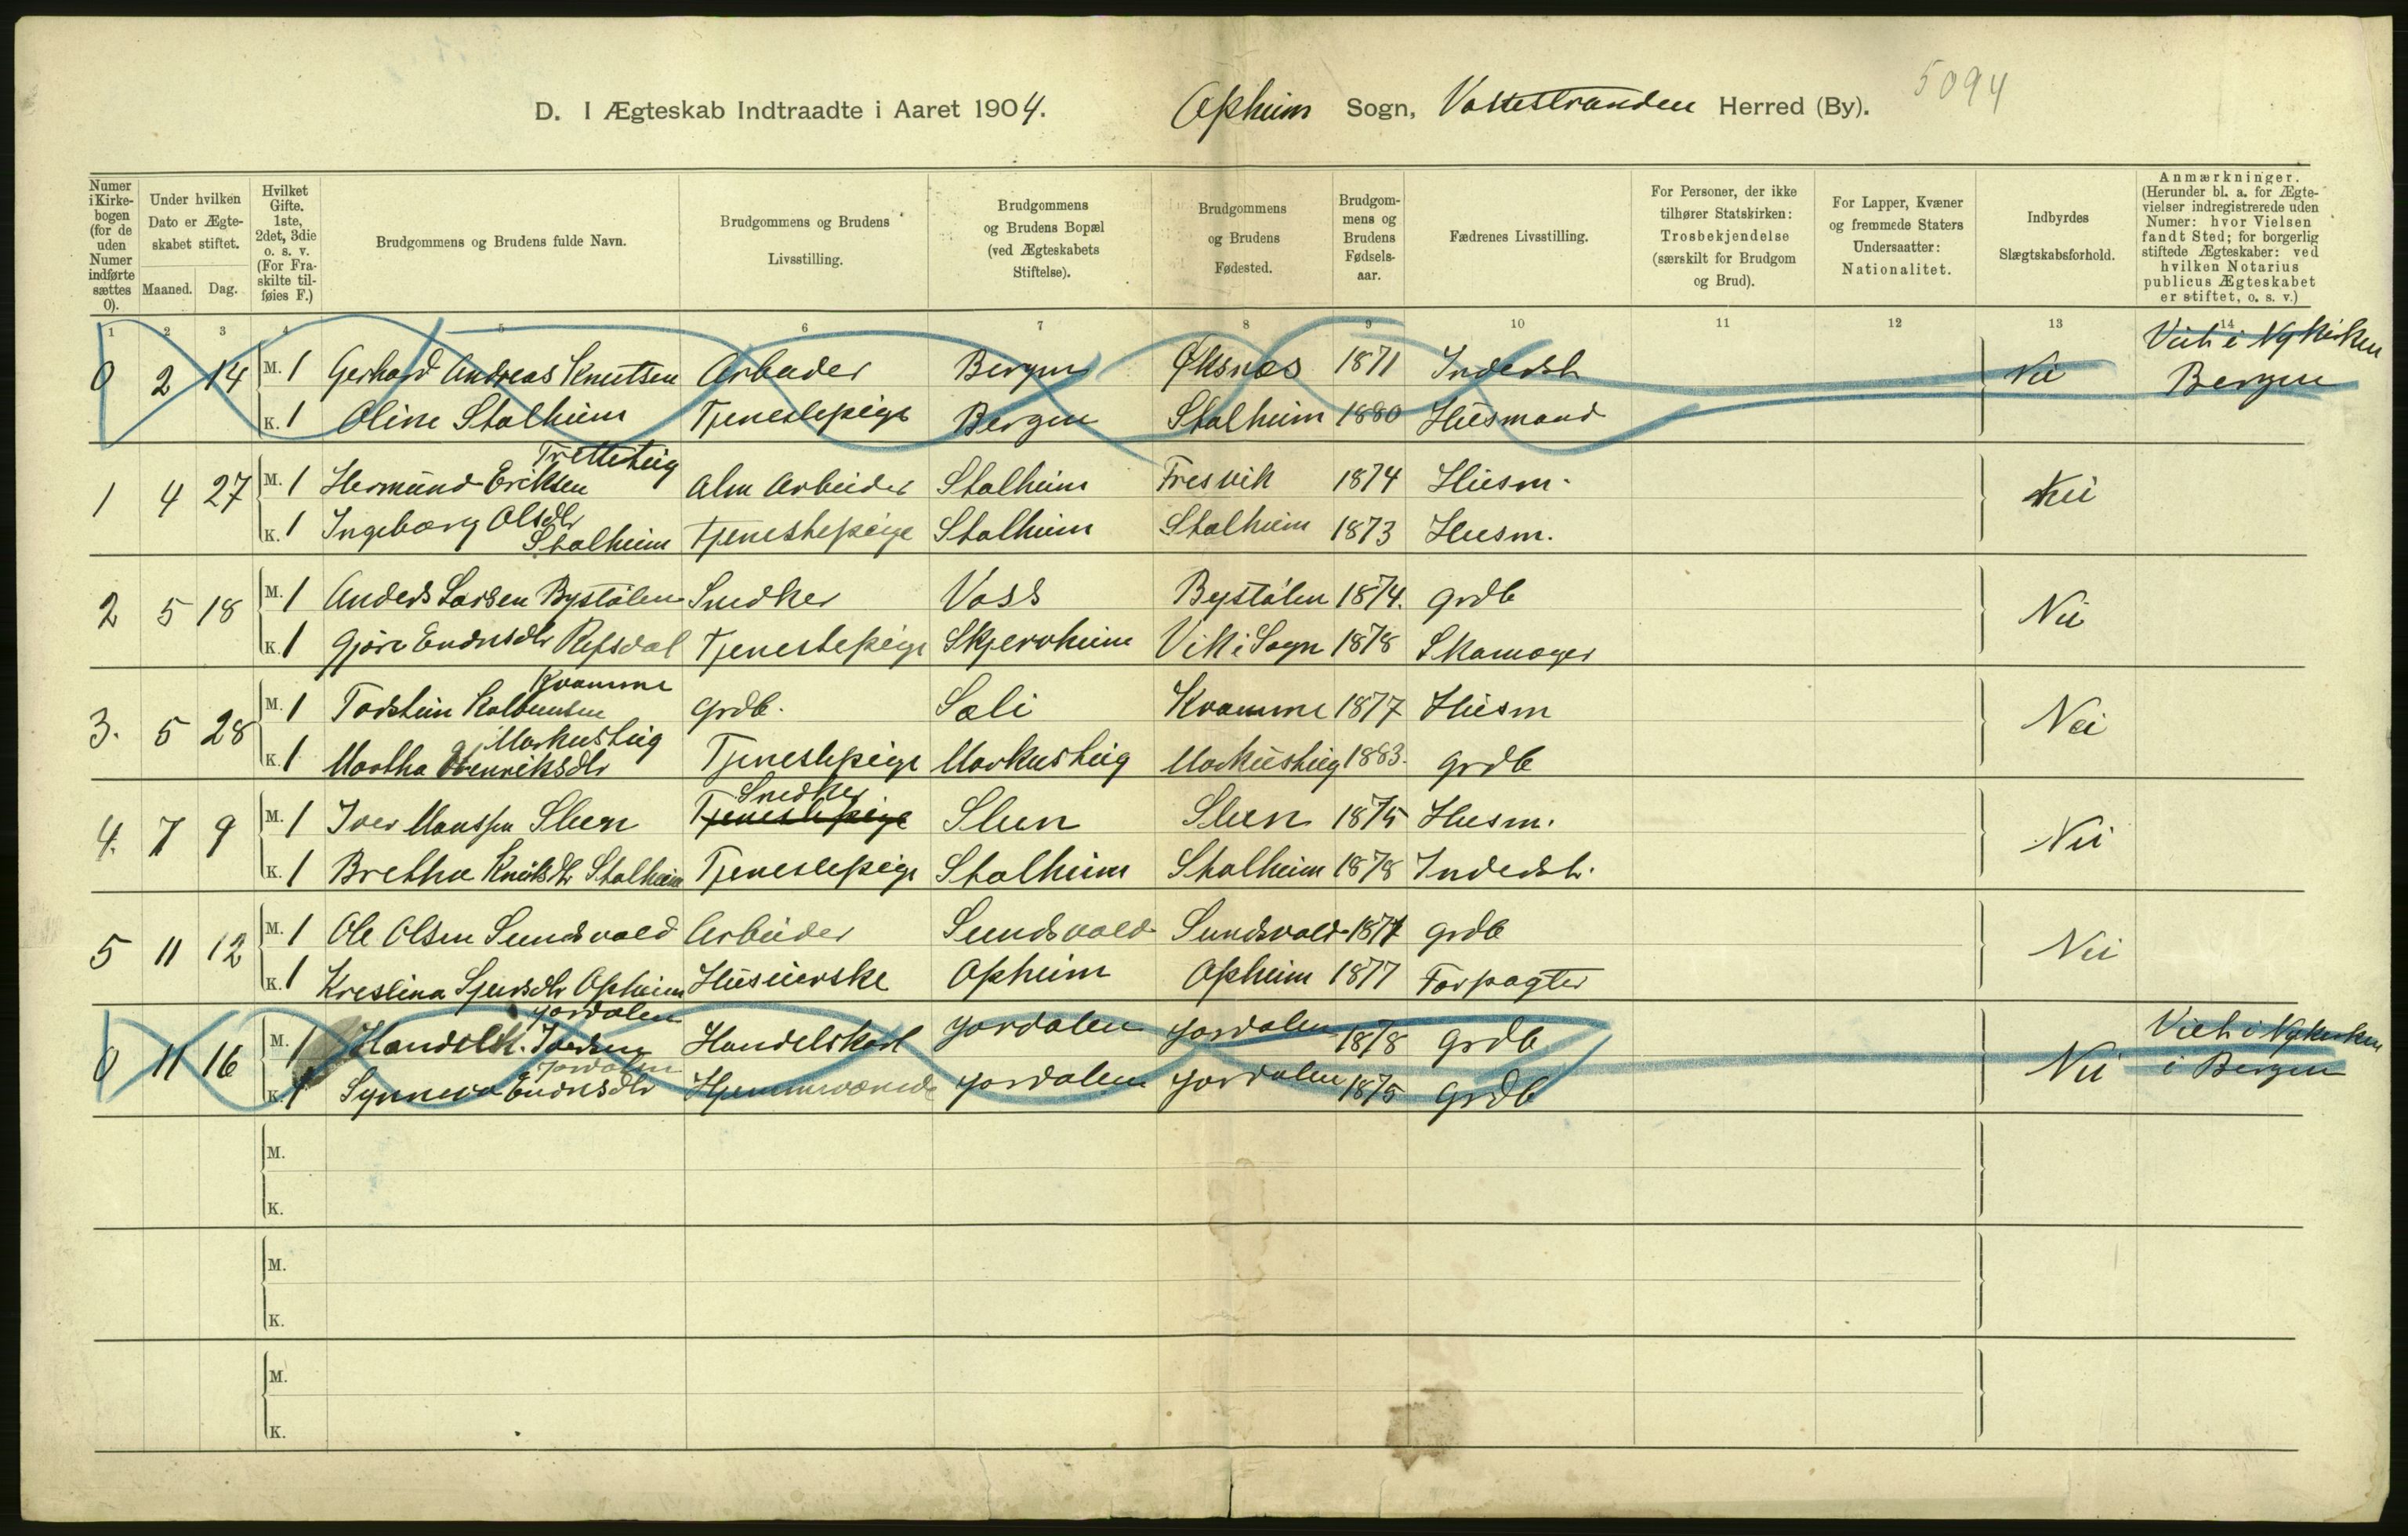 5094
D. I Ægteskab Indtraadte i Aaret 1904. Opheim Sogn, Vossestranden Herred (By).
Numer i Kirkebogen (for de uden Numer indførte sættes 0).
Under hvilken Dato er Ægteskabet stiftet.
Maaned. Dag.
Hvilket Gifte. 1ste, 2det, 3die o. s. v. (For Fraskilte tilføies F.)
Brudgommens og Brudens fulde Navn.
Brudgommens og Brudens Livsstilling.
Brudgommens og Brudens Bopæl (ved Ægteskabets Stiftelse).
Brudgommens og Brudens Fødested.
Brudgommens og Brudens Fødselsaar.
Fædrenes Livsstilling.
For Personer, der ikke tilhører Statskirken: Trosbekjendelse (særskilt for Brudgom og Brud).
For Lapper, Kvæner og fremmede Staters Undersaatter: Nationalitet.
Indbyrdes Slægtskabsforhold.
Anmærkninger. (Herunder bl. a. for Ægtevielser indregistrerede uden Numer: hvor Vielsen fandt Sted; for borgerlig stiftede Ægteskaber: ved hvilken Notarius publicus Ægteskabet er stiftet, o. s. v.)
1 2 3 4 5 6 7 8 9 10 11 12 13 14
0 2 14 M. 1 Gerhard Andreas Knutsen Arbeider Bergen Øksnes 1871 Inderst Nei Viet i Nykirken Bergen
K. 1 Oline Stalheim Tjenestepige Bergen Stalheim 1880 Husmand
1 4 27 M. 1 Hermund Eriksen Tretteteig Alm Arbeider Stalheim Fresvik 1874 Husm. Nei
K. 1 Ingeborg Olsdtr Stalheim Tjenestepige Stalheim Stalheim 1873 Husm.
2 5 18 M. 1 Anders Larsen Bystölen Snedker Voss Bystölen 1874. Grdb Nei
K. 1 Gjöre Endresdtr Refsdal Tjenestepige Skjervheim Vik i Sogn 1878 Skomager
3. 5 28 M. 1 Torstein Kolbeinsen Kvamme Grdb. Sæli Kvamme 1877 Husm Nei
K. 1 Martha Henriksdtr Markusteig Tjenestepige Markusteig Markusteig 1883. Grdb
4. 7 9 M. 1 Iver Monssen Sleen Tjenestepige Snedker Sleen Sleen 1875 Husm. Nei
K. 1 Bretha Knutsdtr Stalheim Tjenestepige Stalheim Stalheim 1878 Inderst.
5 11 12 M. 1 Ole Olsen Sundsvald Arbeider Sundsvald Sundsvald 1877 Grdb Nei
K. 1 Kristina Sjursdtr Opheim Husierske Opheim Opheim 1877 Forpagter
0 11 16 M. 1 Iversen Jordalen Handelskarl Jordalen Jordalen 1878 Grdb Nei Viet i Nykirken i Bergen
K. 1 Synneva Endresdtr Jordalen Hjemmeværende Jordalen Jordalen 1875 Grdb
M.
K.
M.
K.
M.
K.